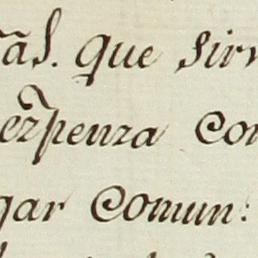 ãs. que sirv
ezpenza con
gar comun: